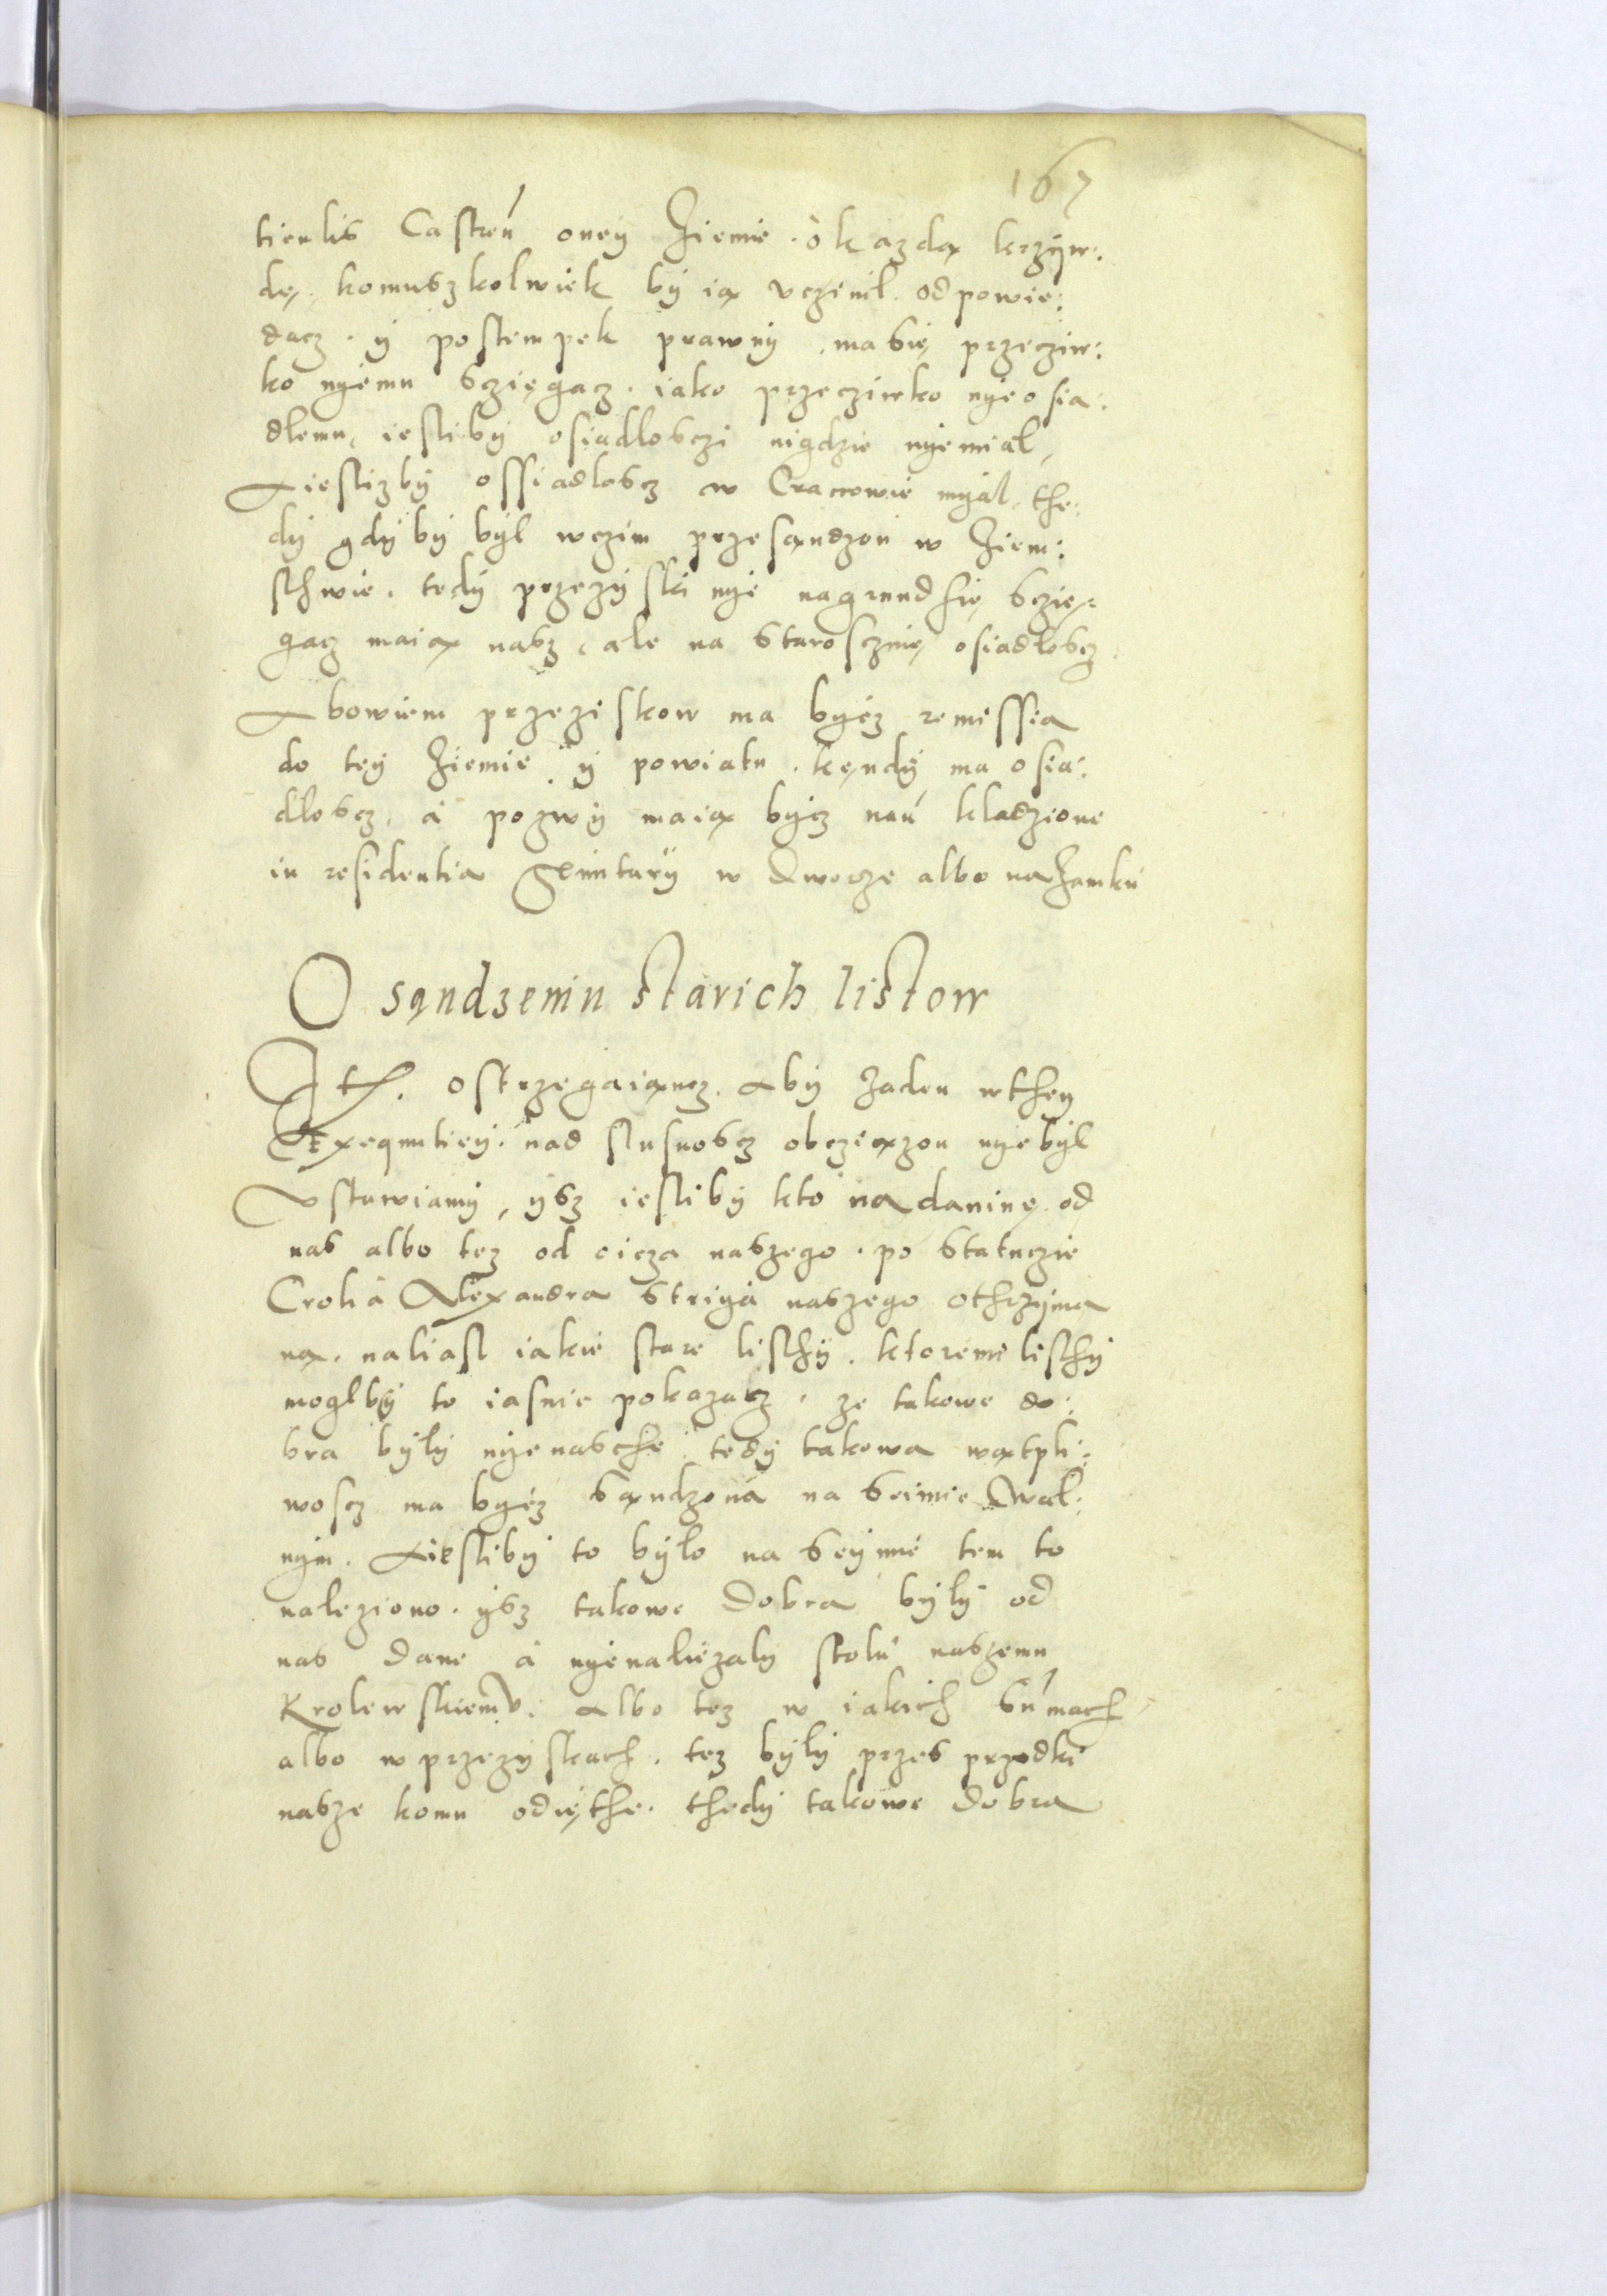 167
tionlis Castren̄ oney Ziemie. o kazdą krzyw:
dę, komuszkolwiek by ią vczinil. odpowie:
dacz. y postempek prawny, ma się przecziw:
ko nyemu scziegacz. iako przecziwko nyeosia:
dłemu, iesliby osiadlosczi nigdzie nyemial,
A ieslizby ossiadlosc w Cracowie myal, the:
dy gdyby był wczim przesandzon w Ziem:
sthwie. tedy przezyski nye nagrund się sczię:
gacz maią nasz, ale na starosczinę osiadłoscz
Abowiem przeziskow ma bycz remissia
do tey Ziemie, y powiatu. kędy ma osia:
dloscz, a pozwy maią bycz nań kladzione
in residentia w dworze albo na Zamku
O sąndzeniu starich listow
Ith. ostrzegaiąncz. Aby zaden wthey
Exequutiey. nad slusnoscz obcziązon nyebyl
Vstawiamy, ysz iesliby kto na daninę od
nas albo tez od oicza naszego. po statuczie
Crolia Alexandra striya naszego othrzyma
ną. naliasl iakie stare listhy. ktoremi listhy
mogłby to iasnie pokazacz. ze takowe do:
bra były nyenasche. tedy takowa wątpli:
woscz ma bycz sąndzona na seimie Wal:
nym. A iesliby to było na seymie tem to
naleziono. ysz takowe dobra były od
nas dane a nyenaliezaly stolu naszemu
Krolewskiemv. Albo tez w iakich sūmach
albo w przezyskach. tez były przes przodki
nasze komu odięthe. thedy takowe dobra